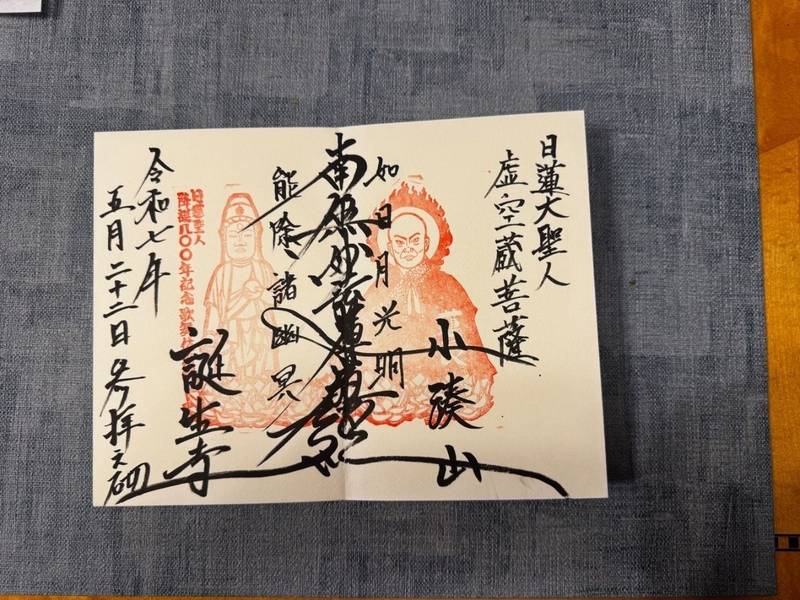 日蓮大聖人
虚空蔵菩薩
小湊山
如日月光明
南無妙法蓮華経
能除諸幽冥
誕生寺
日蓮聖人
降誕八〇〇年記念歌舞伎
令和七年
五月二十二日参拝之砌